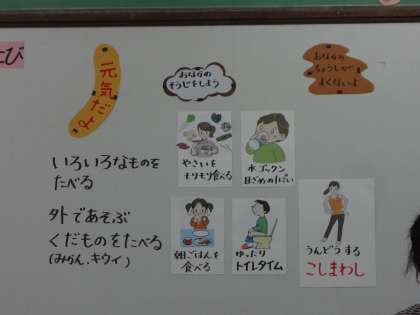 たび
元気だよ
おなかの
そうじをしよう
おなかの
ちょうしが
よくないよ
いろいろなものを
たべる
外であそぶ
くだものをたべる
(みかん、キウイ)
やさいを
モリモリ食べる
水ゴックン
目ざめの1ぱい
朝ごはんを
食べる
ゆったり
トイレタイム
うんどうする
こしまわし